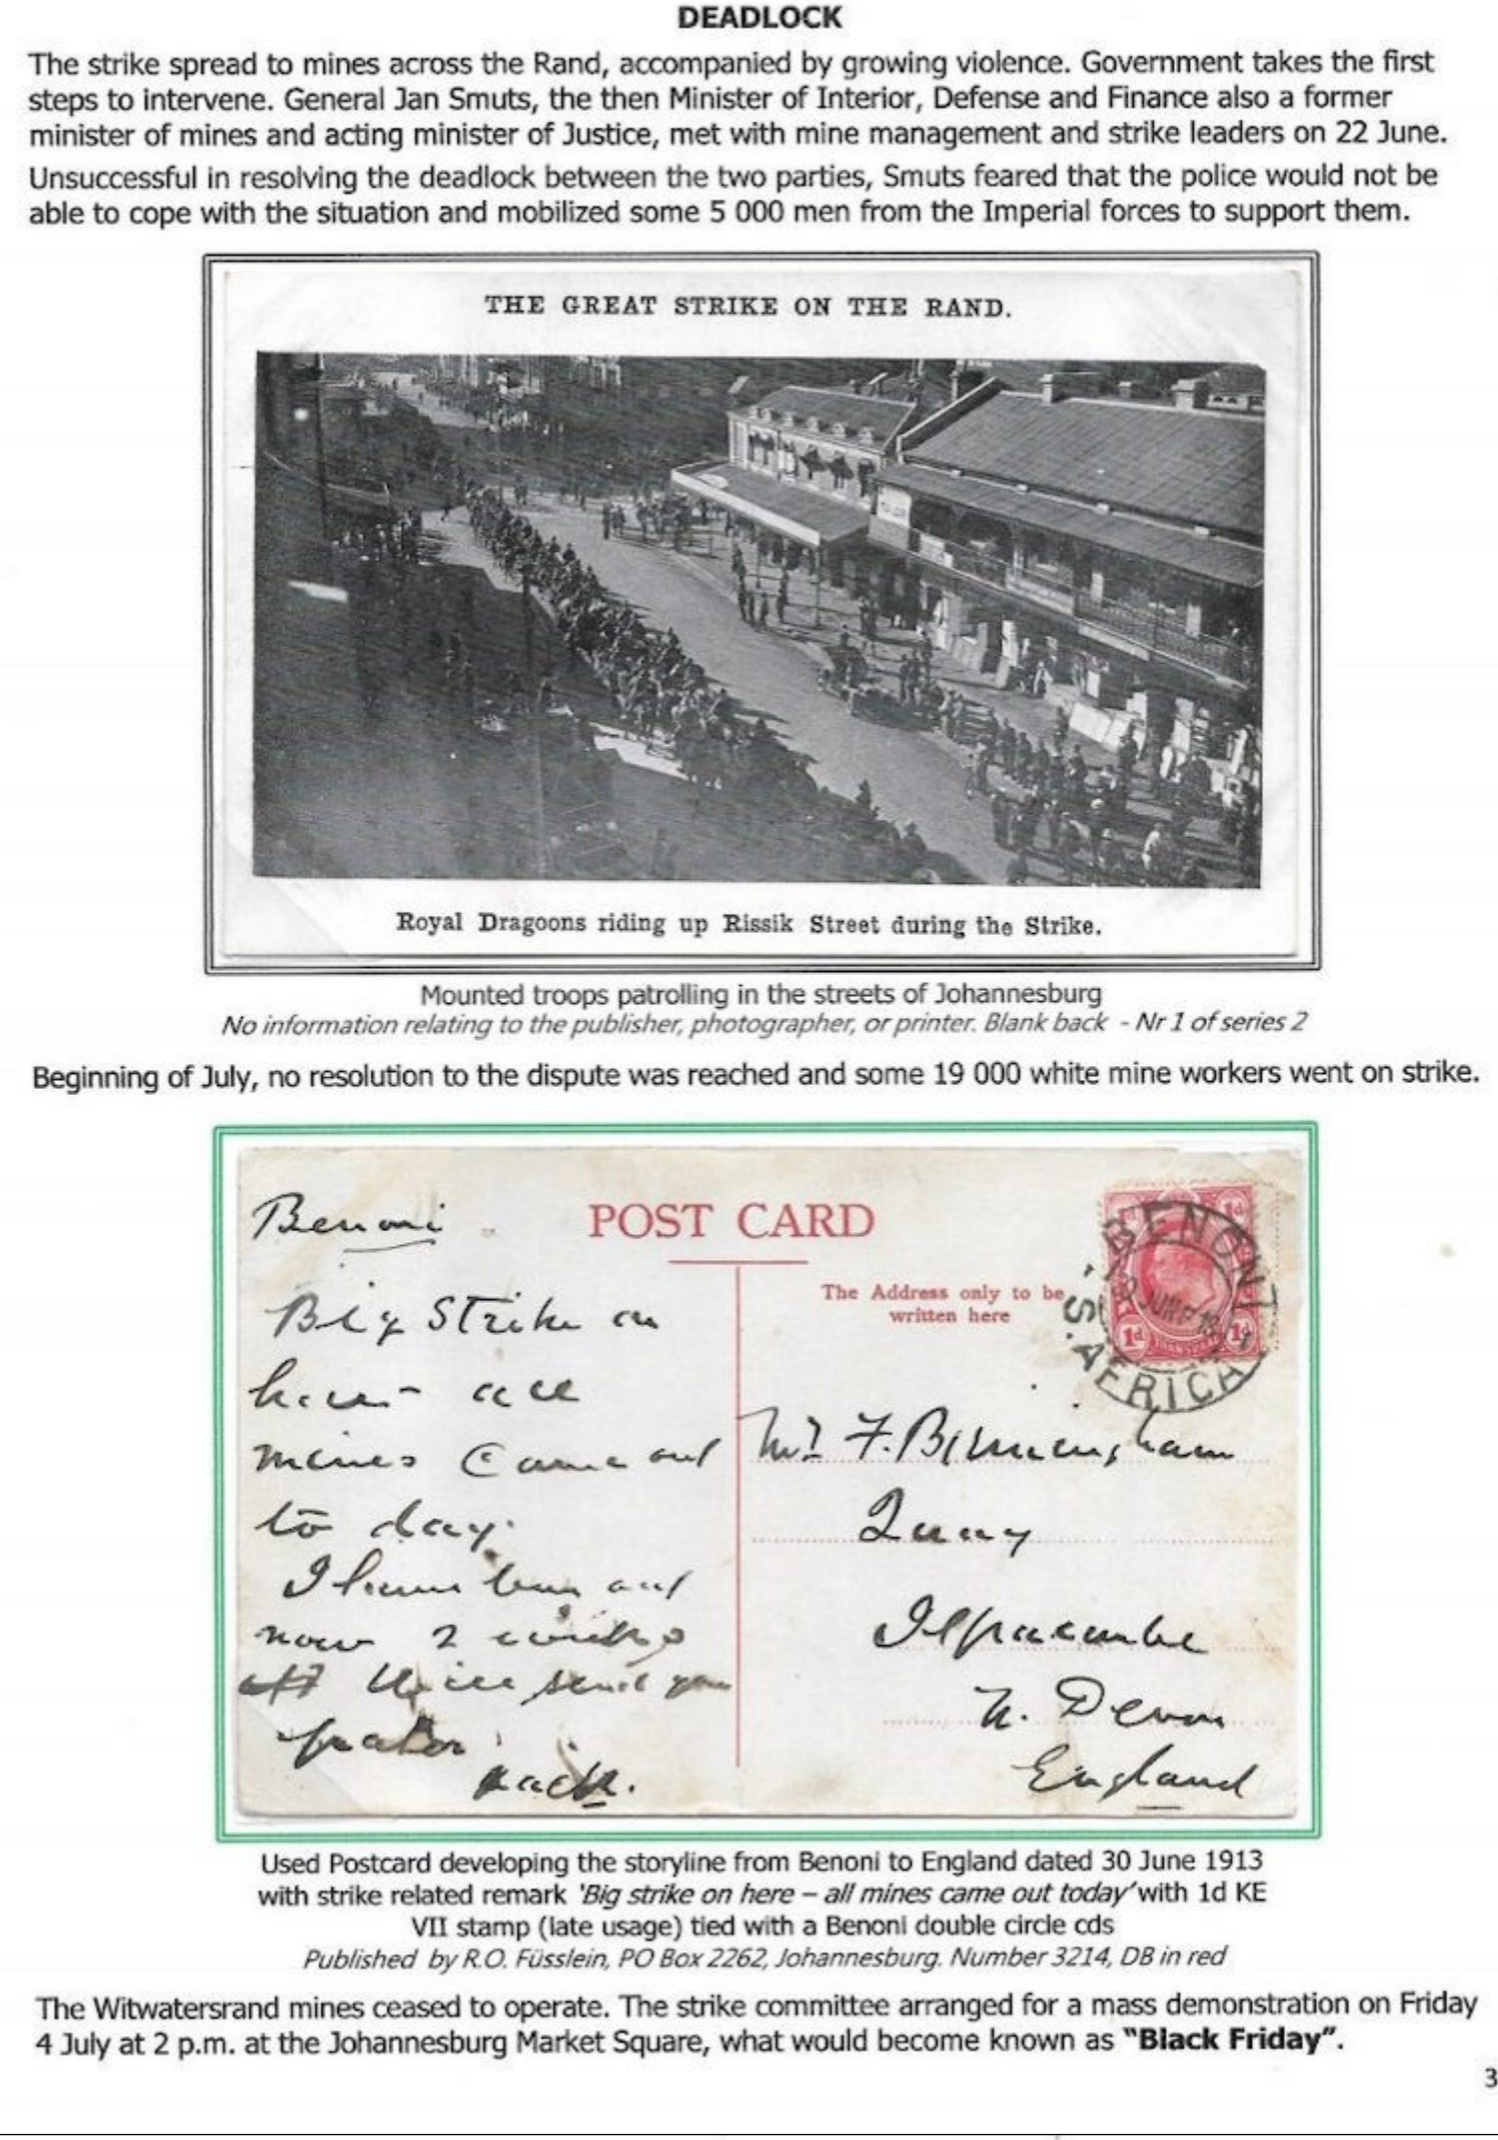 DEADLOCK
The strike spread to mines across the Rand, accompanied by growing violence. Government takes the first
steps to intervene. General Jan Smuts, the then Minister of Interior, Defense and Finance also a former
minister of mines and acting minister of Justice, met with mine management and strike leaders on 22 June.
Unsuccessful in resolving the deadlock between the two parties, Smuts feared that the police would not be
able to cope with the situation and mobilized some 5 000 men from the Imperial forces to support them.
THE GREAT STRIKE ON THE RAND.
Royal Dragoons riding up Rissik Street during the Strike.
Mounted troops patrolling in the streets of Johannesburg
No information relating to the publisher, photographer, or printer. Blank back - Nr 1 of series 2
Beginning of July, no resolution to the dispute was reached and some 19 000 white mine workers went on strike.
Benoni
Big Strike on
here - all
mines Came out
to day.
I have been out
now 2 weeks
Will send you
paper
Jack.
POST CARD
The Address only to be
written here
BENONI
S. AFRICA
JUN 13
1d 1d
1d 1d
Mr F. Birmingham
Quay
Ilfracombe
N. Devon
England
Used Postcard developing the storyline from Benoni to England dated 30 June 1913
with strike related remark 'Big strike on here – all mines came out today' with 1d KE
VII stamp (late usage) tied with a Benoni double circle cds
Published by R.O. Füsslein, PO Box 2262, Johannesburg. Number 3214, DB in red
The Witwatersrand mines ceased to operate. The strike committee arranged for a mass demonstration on Friday
4 July at 2 p.m. at the Johannesburg Market Square, what would become known as "Black Friday".
3